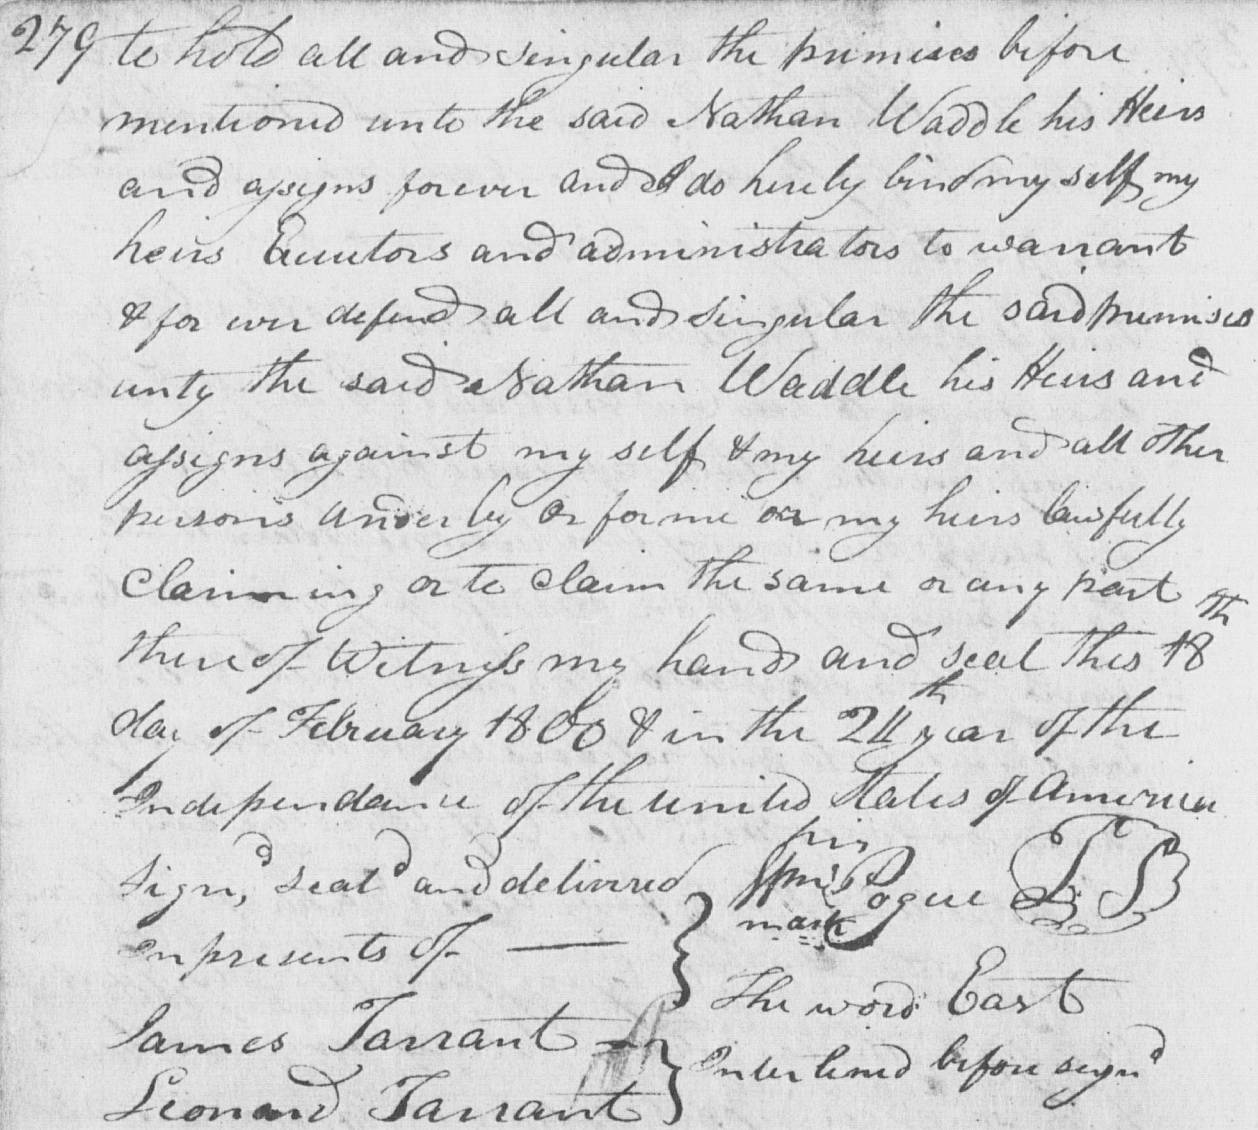 279 to hold all and singular the primises before
mentioned unto the said Nathan Waddle his Heirs
and assigns forever and I do hereby bind my self my
heirs Executors and administrators to warrant
& for ever defend all and singular the said premises
unty the said Nathan Waddle his Heirs and
assigns against my self & my heirs and all other
persons under by or for me or my heirs lawfully
Claiming or to Claim the same or any part
there of Witness my hand and seal this 18th
day of February 1800 & in the 24th year of the
Independance of the united States of America
Sign,d seald and delivered
in presents of
James Tarrant
Leonard Tarrant
his
Pogue L S
mark
The word East
Interlined before signd